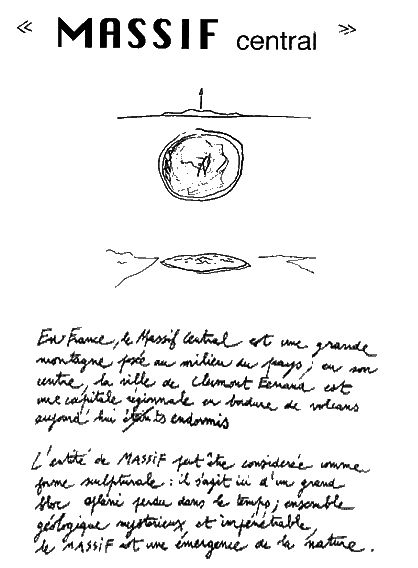 « MASSIF central »
En France, le Massif Central est une grande
montagne posée au milieu du pays; en son
centre, la ville de Clermont Ferrand est
une capitale régionnale en bordure de volcans
aujourd'hui endormis
L'entité de MASSIF peut être considerée comme
forme sculpturale: il s'agit ici d'un grand
bloc aplani perdu dans le temps; ensemble
géologique mystérieux et impénétrable,
le MASSIF est une émergence de la nature.